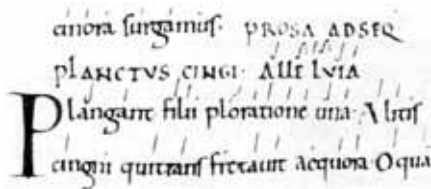 cinora surgamus. PROSA AD SEQ
PLANCTVS CINGI. ALLELVIA
Plangant filii ploratione una. Alitis
cingni qui trans fretauit aequora. O qua